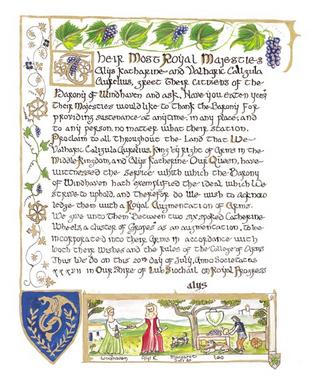 Their Most Royal Majesties
Alys Katharine and Valharic Caligula
Aurelius, greet Their Citizens of the
Barony of Windhaven and ask, Have you eaten yet?
Their Majesties would like to Thank the Barony For
providing sustenance at anytime, in any place, and
to any person, no matter what their station.
Proclaim to all Throughout the Land that We
Valharic Caligula Aurelius, King by right of Arms in the
Middle Kingdom, and Alys Katherine Our Queen, have
witnessed the Service with which the Barony
of Windhaven hath exemplified the ideal which We
strive to uphold, and therefore do We wish to acknow
ledge them with a Royal Augmentation of Arms.
We give unto Them Between two six spoked Catherine
Wheels, a Cluster of Grapes as an augmentation, to be
incorporated into their Arms in accordance with
both their Wishes and the Rules of the College of Arms
Thus We do on this 20th day of July, Anno Societatis
in Our Shire of on Royal Progress
alys
Windhaven Alys K Leo